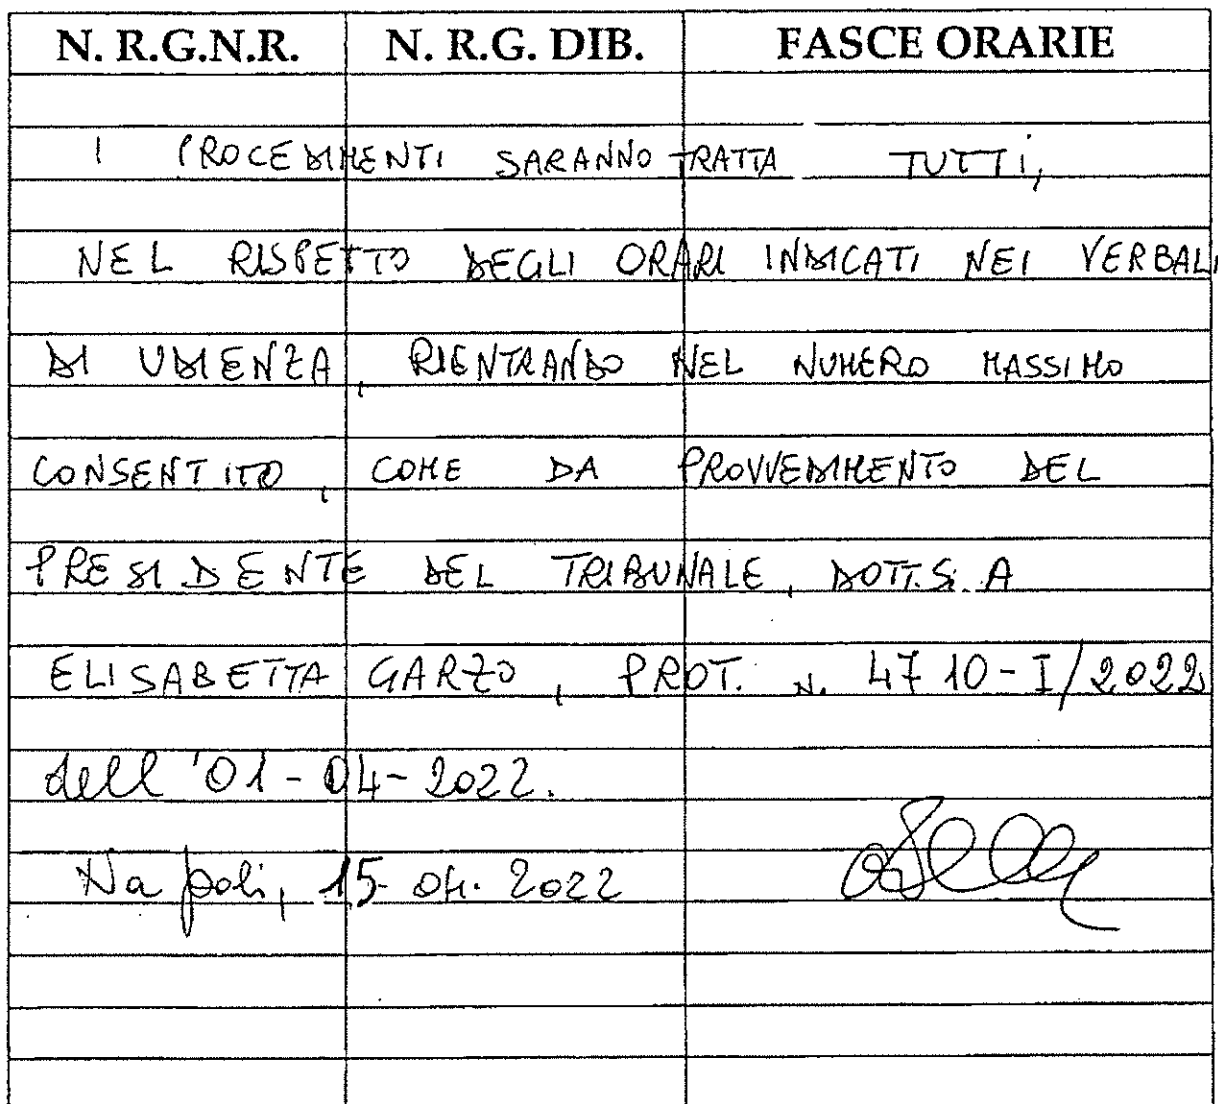 N. R.G.N.R. N. R.G. DIB. FASCE ORARIE
I PROCEDIMENTI SARANNO TRATTA TUTTI,
NEL RISPETTO DEGLI ORARI INDICATI NEI VERBALI
DI UDIENZA, RIENTRANDO NEL NUMERO MASSIMO
CONSENTITO, COME DA PROVVEDIMENTO DEL
PRESIDENTE DEL TRIBUNALE, DOTT.S.A
ELISABETTA GARZO, PROT. N. 4710-I/2022
dell'01-04-2022.
Napoli, 15-04.2022